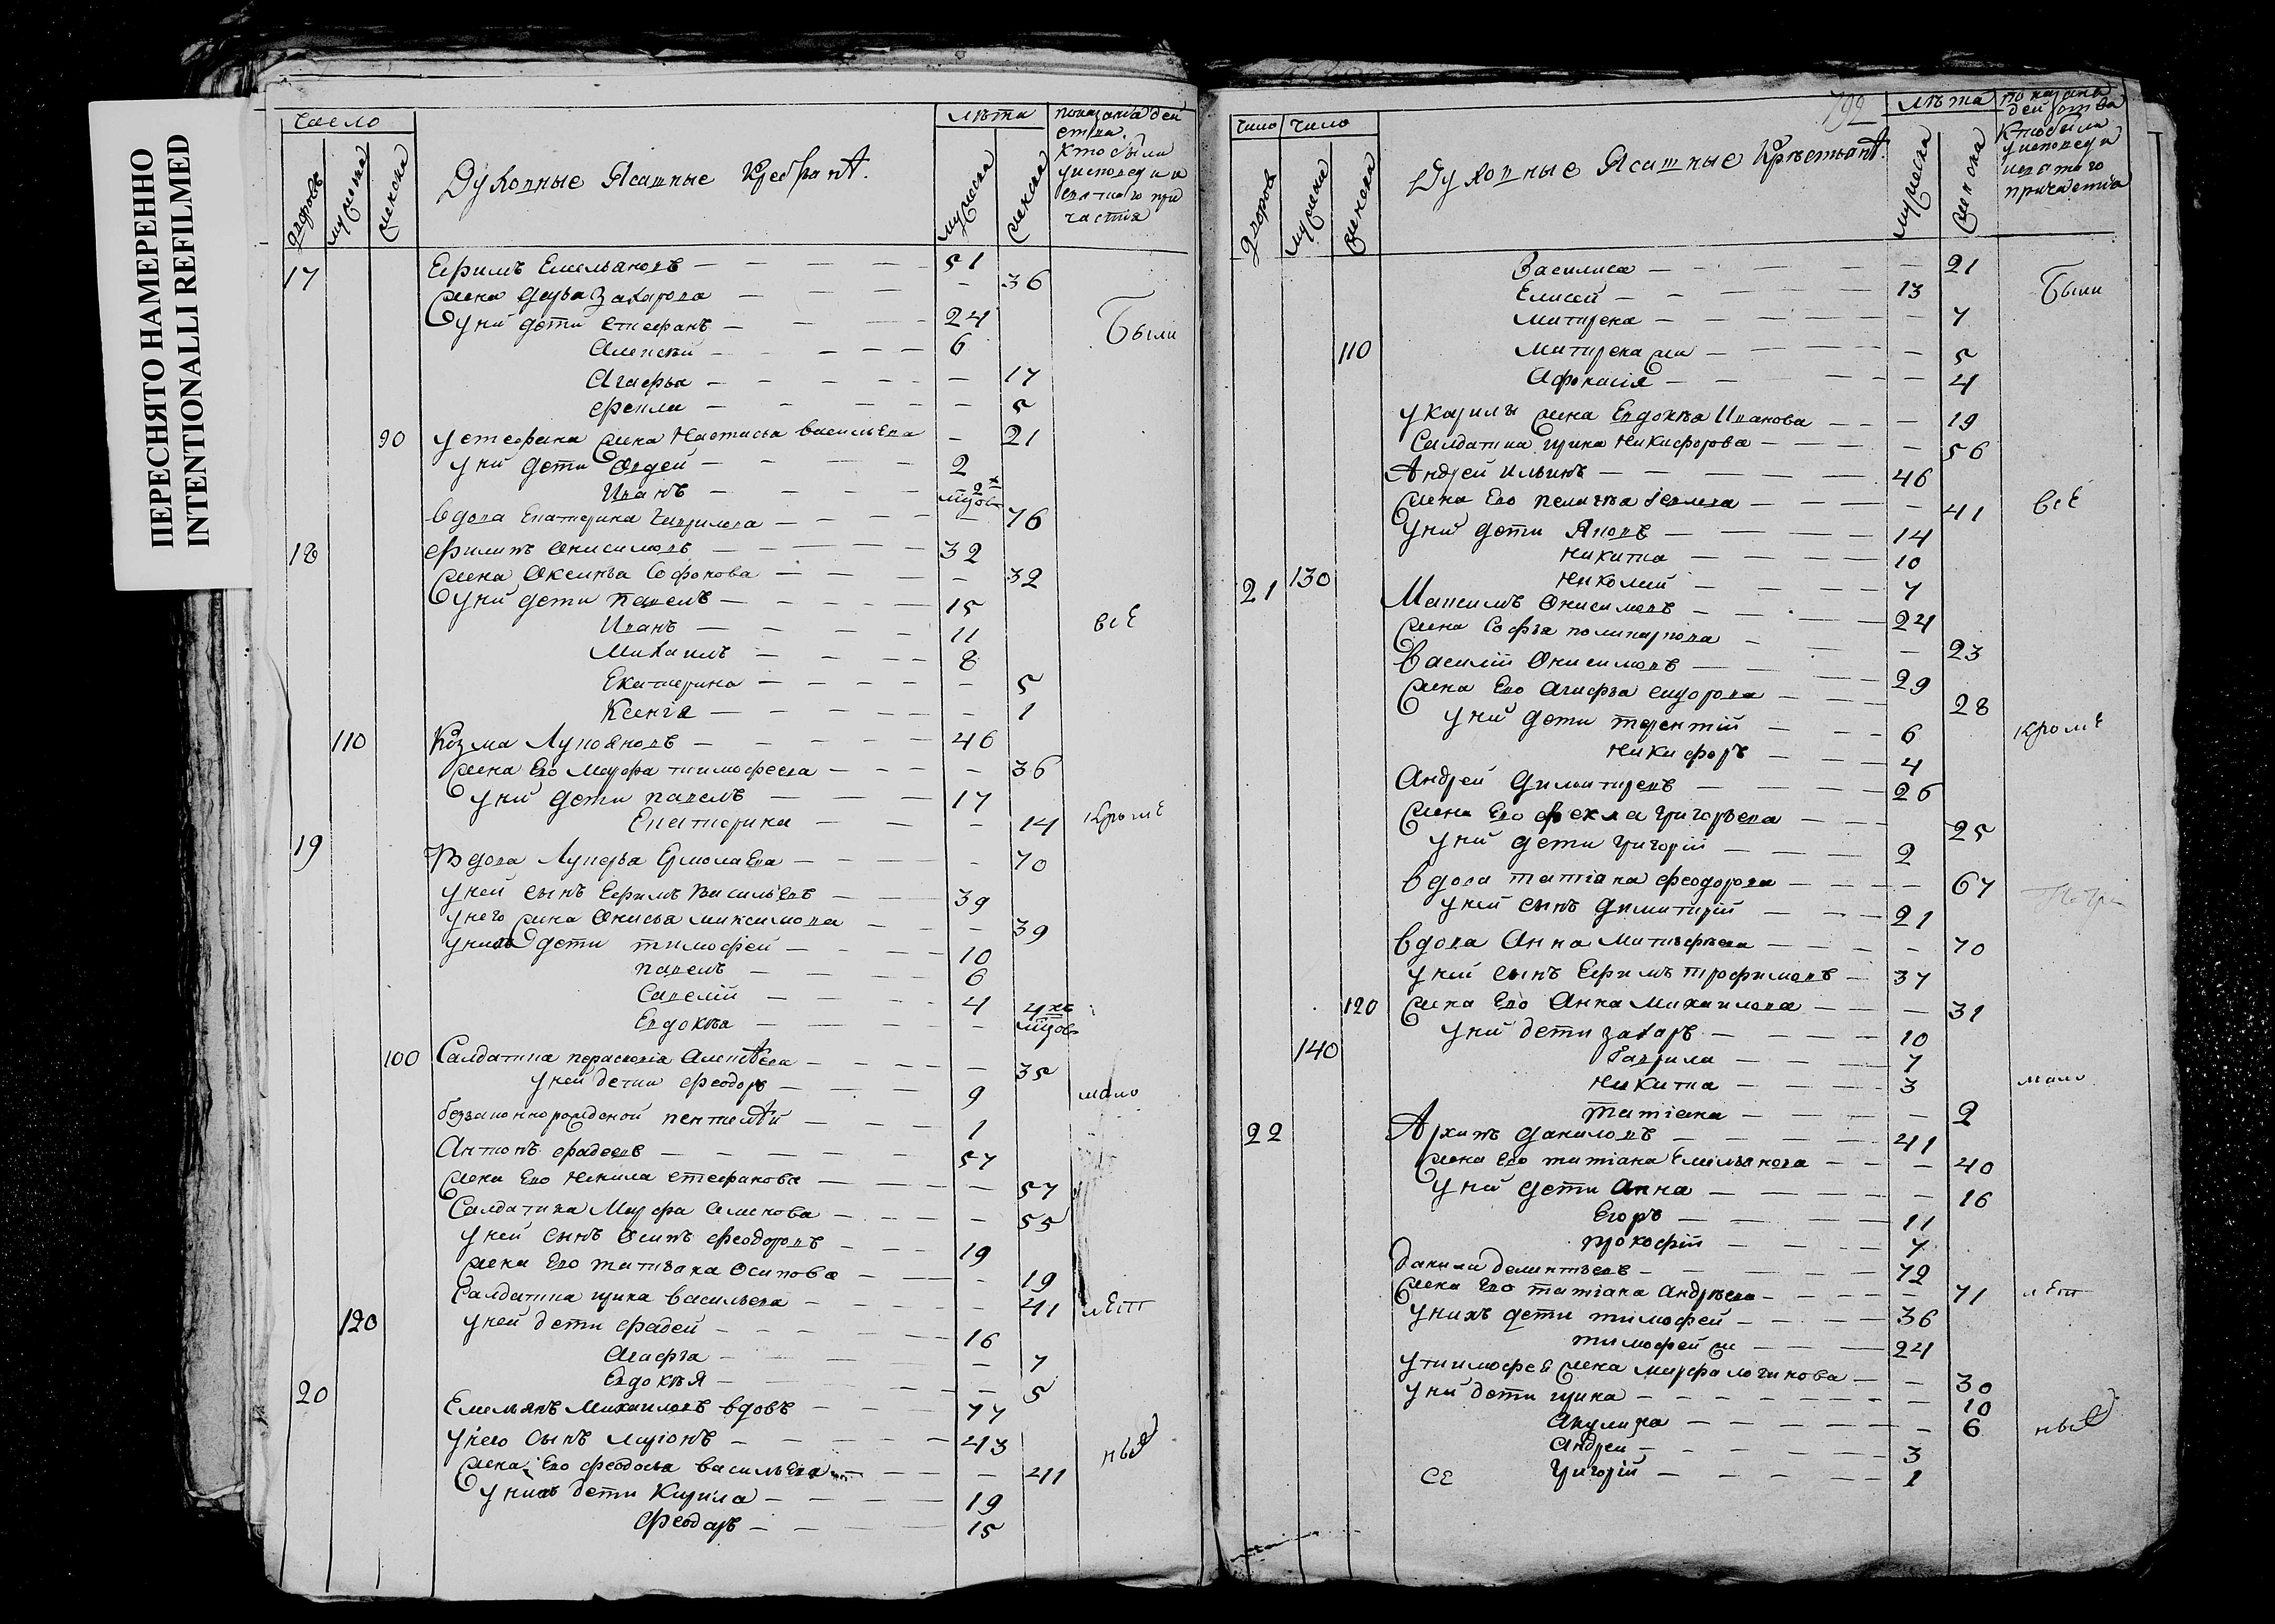 ПЕРЕСНЯТО НАМЕРЕННО
INTENTIONALLI REFILMED
число
дворовъ
мужеска
женска
Духовные Ясашные Крестьянѣ.
лѣта
мужеска
женска
показание дей
ства.
кто были
у исповеди и
святаго при
частия
17 Ефимъ Емельяновъ — 51
жена Дарья Захарова — 36
у них дети Стефанъ — 24
Алексѣй — 6
Были
Агафья — 17
Фекла — 5
90 у Стефана жена Настасья Васильева — 21
у них дети Авдей — 2
Иванъ —
вдова Екатерина Гаврилова — 76
18 Филипъ Онисимовъ — 32
жена Оксинья Софонова — 32
у них дети Павелъ — 15
Иванъ — 11
всѣ
Михаилъ — 8
Екатерина — 5
Ксения — 1
110 Козма Лупояновъ — 46
жена Ево Марфа Тимофеева — 36
у них дети Павелъ — 17
Екатерина — 14
кромѣ
19 Вдова Лукерья Ермолаева — 70
у ней сынъ Ефимъ Васильевъ — 39
у него жена Онисья Максимова — 39
у нихъ дети Тимофей — 10
Павелъ — 6
Савелий — 4
Евдокѣя — 4хъ мцов
100 Салдатка Параскевия Алексѣева — 35
у ней дети Феодоръ — 9
мало
беззаконнорожденой Пентелѣй — 1
Антонъ Фадеевъ — 57
жена Ево Ненила Стефанова — 57
Салдатка Марфа Семенова — 55
у ней сынъ Осипъ Феодоровъ — 19
жена Ево Татьяна Осипова — 19
Салдатка Ирина Васильева — 41
лѣт
120 у ней дети Фадей — 16
Агафья — 7
Евдокѣя — 5
20 Емельянъ Михаиловъ вдовъ — 77
у него сынъ Ларионъ — 43
ных
жена Ево Феодосья Васильева — 41
у нихъ дети Кирила — 19
Феодоръ — 15
792
число
число
дворовъ
мужеска
женска
Духовные Ясашные Крѣстьянѣ.
лѣта
мужеска
женска
показание
действа
кто были
у исповеди
и святаго
причастия
Василиса — 21
Елисей — 13
Были
Матрена — 7
110 Матрена ж — 5
Афонасия — 4
у Кирилы жена Евдокѣя Иванова — 19
Салдатка Ирина Никифорова — 56
Андрей Ильинъ — 46
жена Ево Пелагѣа — 41
всѣ
у них дети Яковъ — 14
Никита — 10
130 Николай — 7
21 Максимъ Онисимовъ — 24
жена Софья Поликарпова — 23
Василий Онисимовъ — 29
жена Ево Агафья Сидорова — 28
у них дети Терентий — 6
кромѣ
Никифоръ — 4
Андрей Димитриевъ — 26
жена Ево Фекла Григорьева — 25
у них дети Григорий — 2
вдова Татиана Феодорова — 67
у ней сынъ Димитрий — 21
вдова Анна Матвѣева — 70
у ней сынъ Ефимъ Трофимовъ — 37
120 жена Ево Анна Михаилова — 31
у них дети Захаръ — 10
140 Гаврила — 7
Никита — 3
мало
Татиана — 2
22 Архипъ Даниловъ — 41
жена Ево Татиана Емельянова — 40
у них дети Анна — 16
Егоръ — 11
Прокофий — 7
Данила Дементьевъ — 72
жена Ево Татиана Андрѣева — 71
лѣт
у нихъ дети Тимофей — 36
Тимофей ж — 24
у Тимофея жена Марфа Логинова — 30
у них дети Ирина — 10
Акулина — 6
ных
Андрей — 3
се Григорий — 1